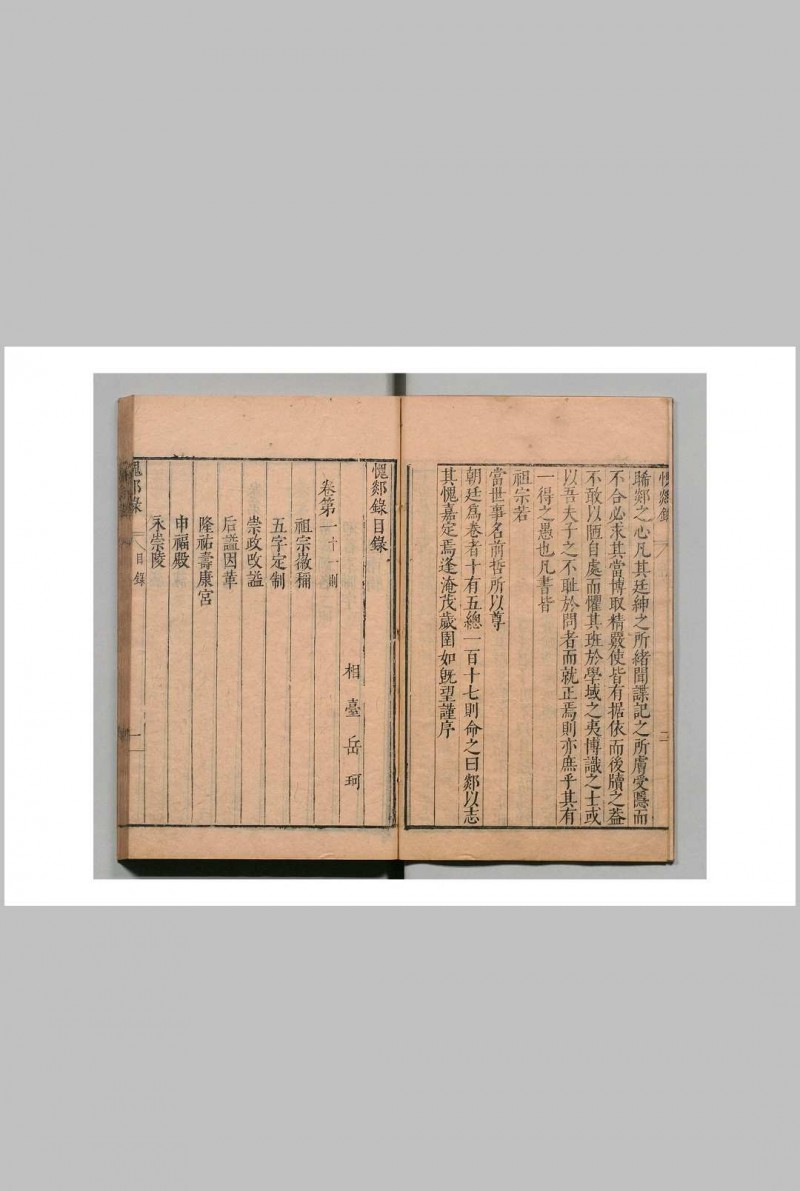 愧郯錄
二
睎郯之心凡其廷紳之所緒聞諜記之所膚受隱而
不合必求其當博取精嚴使皆有据依而後牘之蓋
不敢以陋自處而懼其班於學域之夷博識之士或
以吾夫子之不耻於問者而就正焉則亦庶乎其有
一得之愚也凡書皆
祖宗若
當世事名前哲所以尊
朝廷爲卷者十有五總一百十七則命之曰郯以志
其愧嘉定焉逢淹茂歲圉如旣望謹序
愧郯錄目錄
相臺岳珂
卷第一十一則
祖宗徽稱
五字定制
崇政改謚
后謚因革
隆祐壽康宮
申福殿
永崇陵
愧郯錄
目錄
一